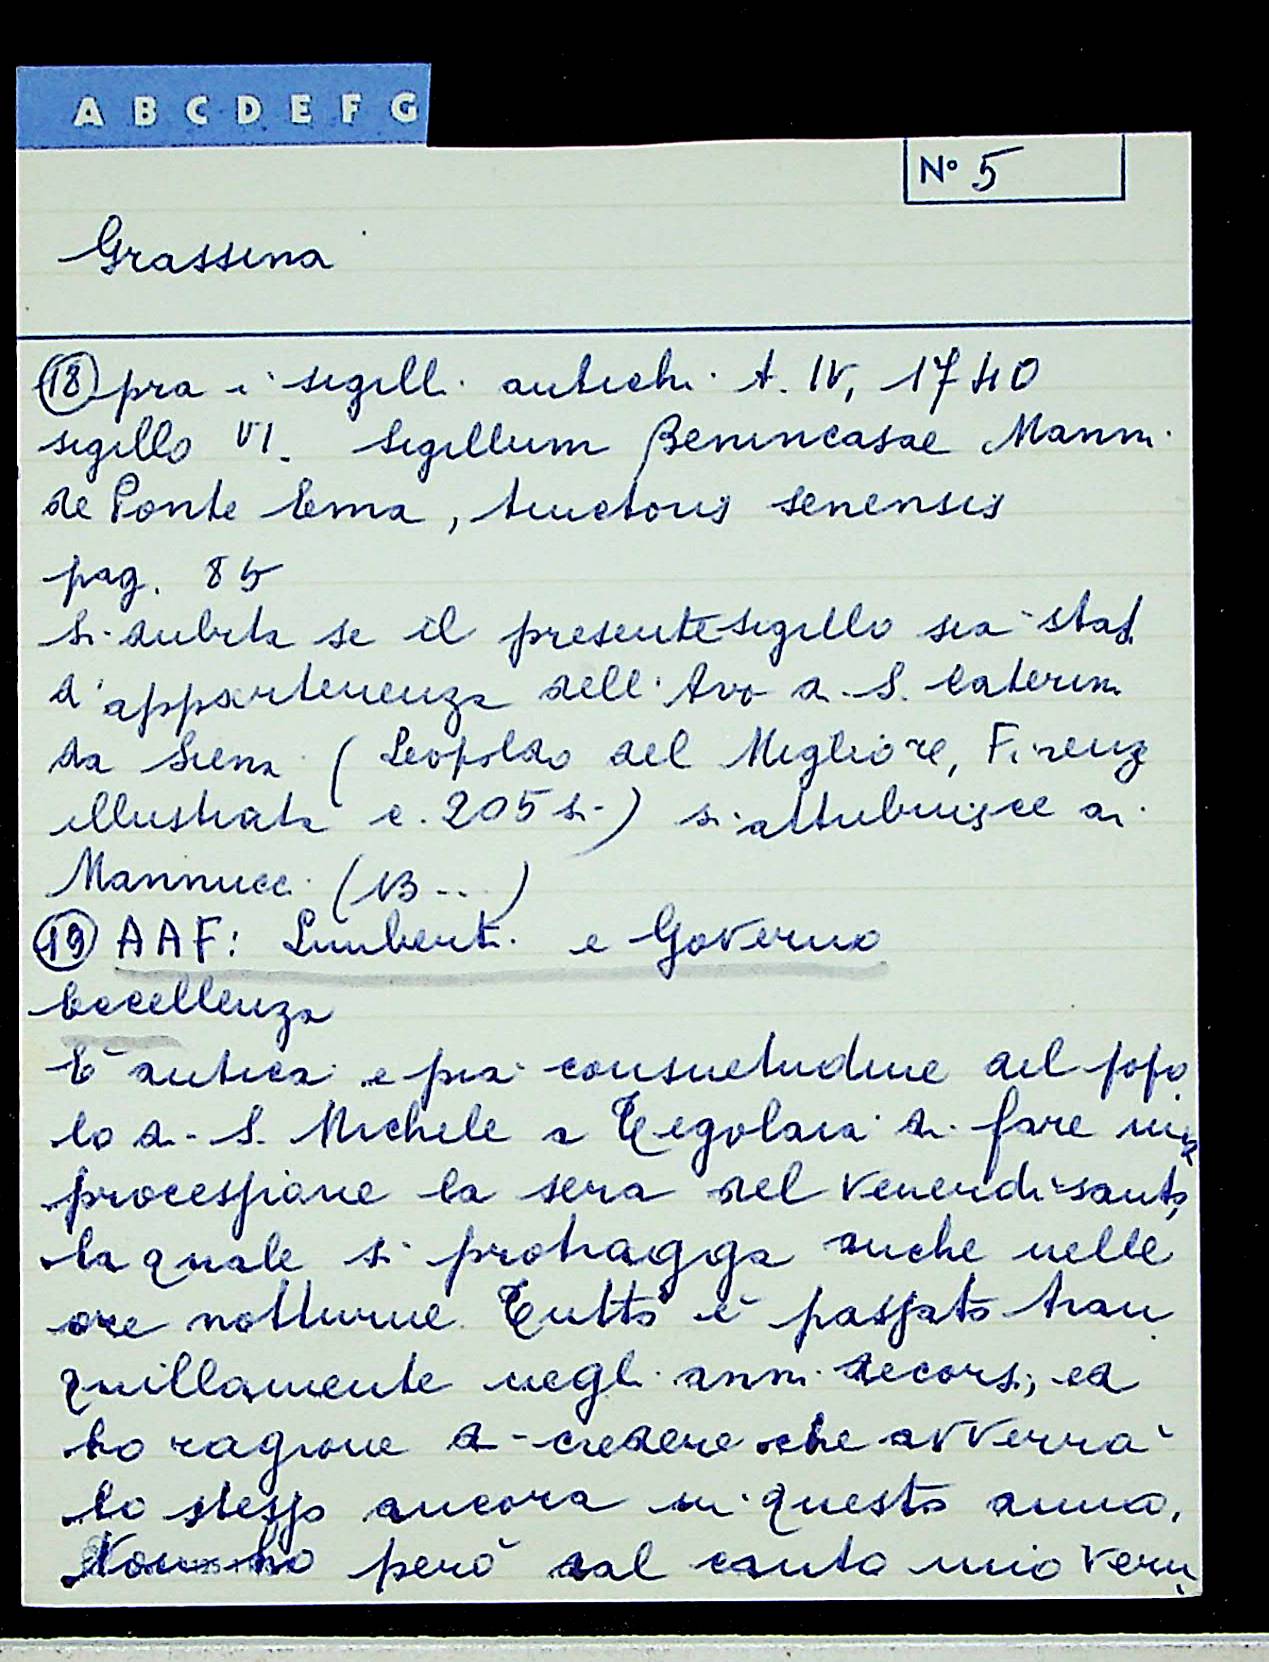 A B C D E F G
N° 5
Grassina
18 pra i sigilli antichi t. IV, 1740
sigillo VI. Sigillum Benincasae Manni
de Ponte Ema, tinctoris senensis
pag. 85
Si dubita se il presente sigillo sia stat
d'appartenenza dell'Avo di S. Caterin
da Siena (Leopoldo del Migliore, Firenz
illustrata c. 205 s.) si attribuisce ai
Mannucci (13...)
19 AAF: Limberti e Governo
Eccellenza
È antica e pia consuetudine del popo
lo di S. Michele a Tegolaia di fare una
processione la sera del Venerdì santo,
la quale si protragga anche nelle
ore notturne. Tutto è passato tran
quillamente negli anni decorsi, ed
ho ragione di credere che avverrà
lo stesso ancora in questo anno.
Non ho però dal canto mio veru